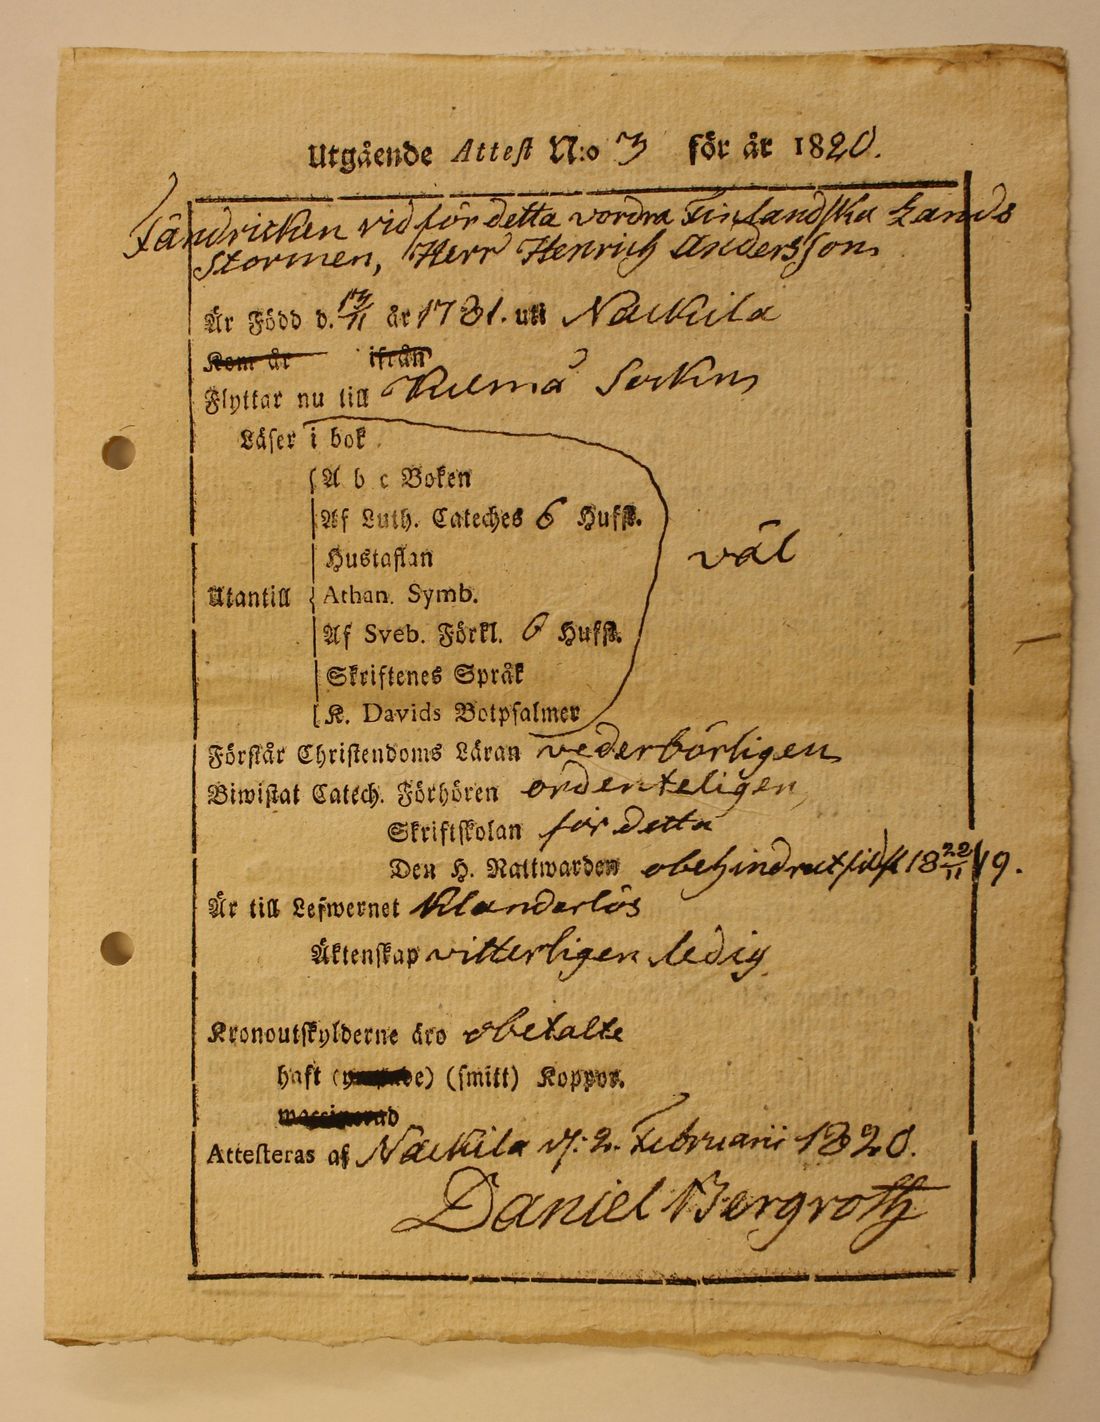 Utgående Attest N:o 3 för år 1820.
Fändricken vid för detta vordna Finlandska Lands
Stormen, Herr Henrich Andersson
Är Född d. 13/11 år 1781. uti Nackila
Kom år ifrån
Flyttar nu till Kulma Sockn
Läser i bok
A b c Boken
Af Luth. Cateches 6 Hufst.
Hustaflan
väl
Utantill Athan. Symb.
Af Sveb. Förkl. 6 Hufst.
Skriftenes Språk
K. Davids Botpsalmer
Förstår Christendoms Läran vederbörligen
Biwistat Catech. Förhören ordenteligen
Skriftskolan för detta
Den H. Nattwarden obehindrat sidst 18 22/11 19.
Är till Lefwernet Klanderlös
Äktenskap vitterligen ledig
Kronoutskylderne äro obetalte
haft () (smitt) Koppor.
Attesteras af Nackila d: 2. Februarii 1820.
Daniel Bergroth